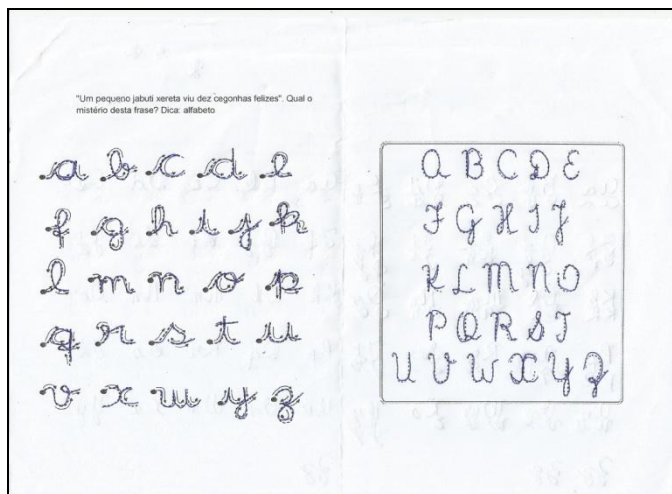 "Um pequeno jabuti xereta viu dez cegonhas felizes". Qual o
mistério desta frase? Dica: alfabeto
a b c d e
f g h i j k
l m n o p
q r s t u
v x w y z
A B C D E
F G H I J
K L M N O
P Q R S T
U V W X Y Z